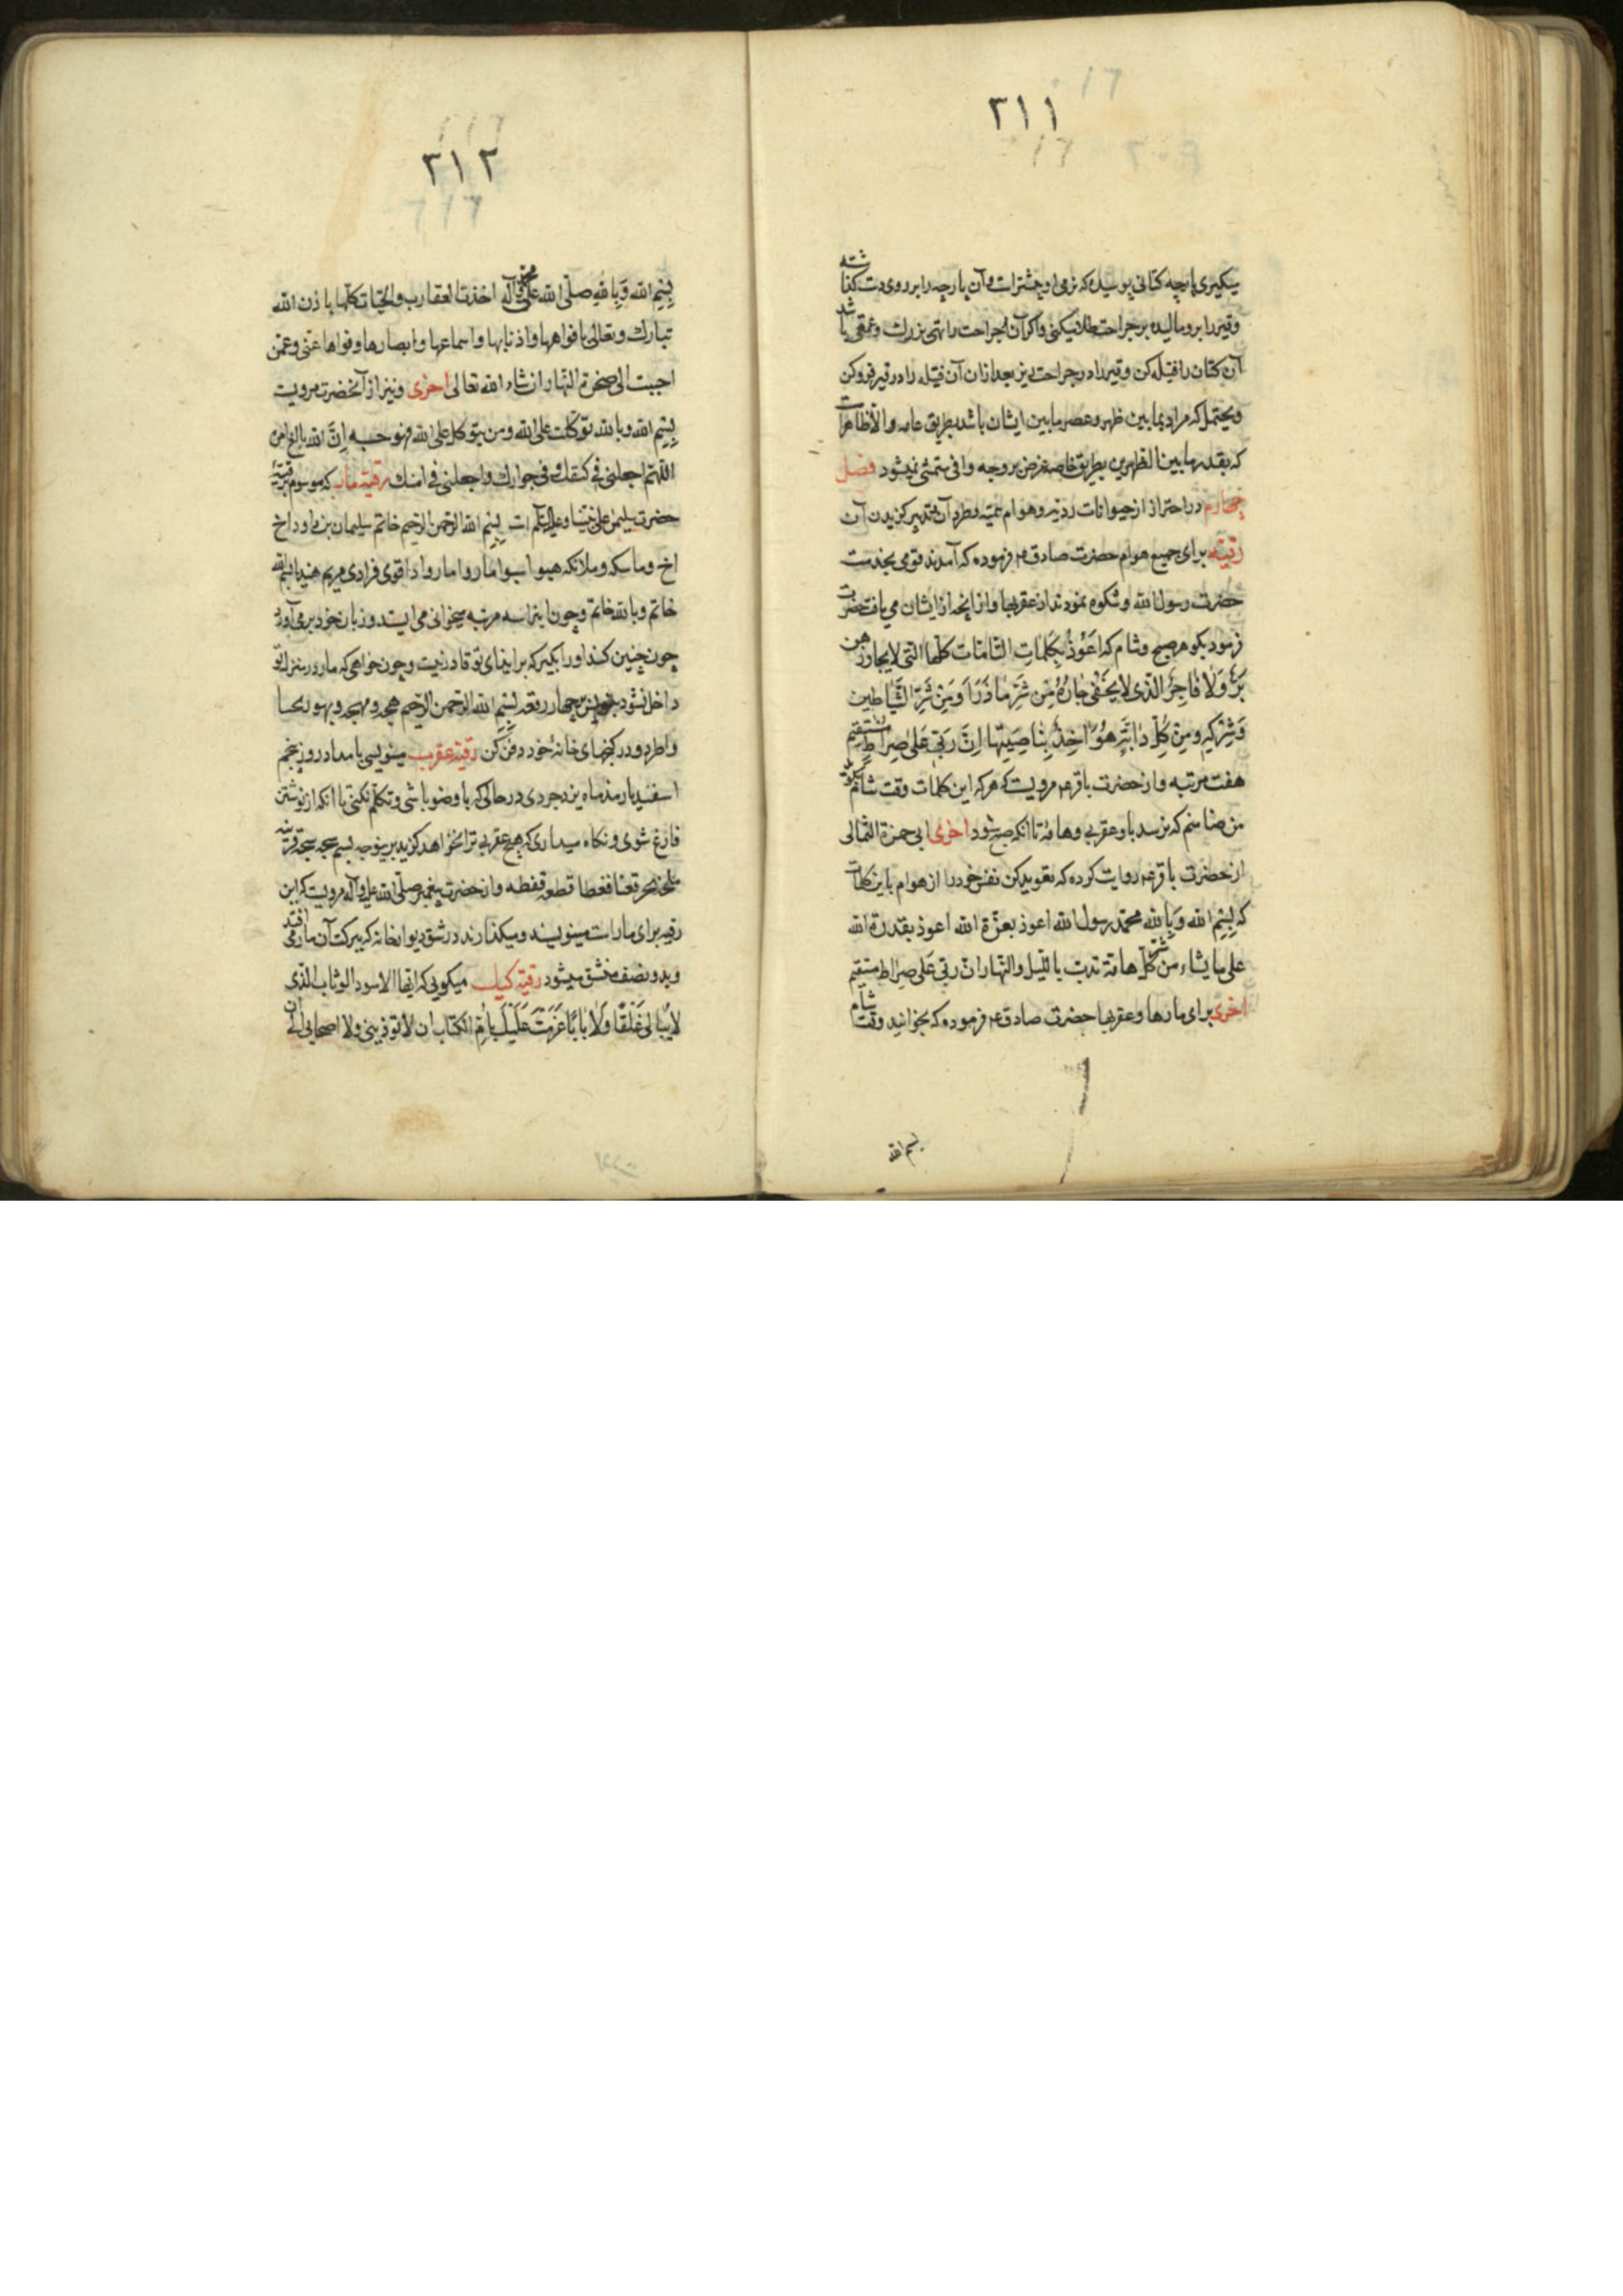 ۲۱۱
میکیری پارچه کتانی پوسیده که نرمی او بیشتر است و آن پارچه را بر روی دست گذاشته
وقیر را برو مالیده بر جراحت طلا میکنی واکر آن جراحت را تهی بزرک وعمقی باشد
آن کتان را فتیله کن وقیر را در جراحت بریز بعد از ان آن فتیله را در قیر فرو کن
ویحتمل که مراد بمابین ظهر وعصر مابین ایشان باشد بطریق عامه والا ظاهر است
که بقدر مابین الظهرین بطریق خاصه غرض بر وجه وافی متمشی نمیشود فصل
چهارم در احتراز از حیوانات ردیه وهوام سمیه وطرد آن وتدبیر کزیدن آن
رقیه برای جمیع هوام حضرت صادق ع فرموده که آمدند قومی بخدمت
حضرت رسول الله وشکوه نمودند از عقربها وانچه از ایشان می یافت حضرت
فرمود بکو هر صبح وشام که اَعُوذُ بِکَلِماتِ التّامّات کلّها الّتی لا یجاوزهن
بَرٌّ وَلا فاجِرٌ الّذی لا یُخفی جارُهُ مِن شَرِّ ما ذَرَأَ وَمِن شَرِّ الشَّیاطین
وَشِرکِهِ ومِن کُلِّ دابَّةٍ هُوَ اخِذٌ بِناصِیَتِها اِنَّ رَبّی عَلی صِراطٍ مستقیم
هفت مرتبه واز حضرت باقر ع مرویست که هر که این کلمات وقت شام بکوید
من ضامنم که نرسد باو عقربی وهامّه تا انکه صبح شود اخری ابی حمزة الثمالی
از حضرت باقر ع روایت کرده که تعوید کن نفس خود را از هوام باین کلمات
که بِسْمِ الله وَبِالله محمّد رسول الله اعوذ بعزّة الله اعوذ بقدرة الله
علی ما یشاء من شر کلّ هامّة تدبّ باللّیل والنّهار انّ ربّی عَلی صِراط مستقیم
اخری برای مارها وعقربها حضرت صادق ع فرموده که بخوانید وقت شام
بسم الله
۲۱۲
بِسْمِ الله وَبِالله صلّی الله علی محمد وآله اخذت العقارب والحیّات کلّها باذن الله
تبارک وتعالی بافواهها واذنابها واسماعها وابصارها وقواها عنّی وعمّن
احببت الی ضحوة النّهار ان شاء الله تعالی اخری ونیز از آنحضرت مرویست
بِسْمِ الله وبالله توکّلت علی الله ومن یتوکل علی الله فهو حسبه اِنَّ الله بالغ امره
اللّهمّ اجعلنی فی کنفک وفی جوارک واجعلنی فی امنک رقیّة مار که موسوم برقیّه
حضرت سلیمن علی نبینا وعلیه السّلم است بِسْمِ الله الرّحمن الرّحیم خاتم سلیمان بن داود اخ
خاتم وبالله خاتم وچون اینرا سه مرتبه بخوانی می ایستد وزبان خود بر می آورد
چون چنین کند او را بکیر که بر ایذای تو قادر نیست وچون خواهی که مار در منزل تو
داخل نشود بنویس بر چهار رقعه بسم الله الرّحمن الرّحیم
واطرد ودر کنجهای خانه خود دفن کن رقیّه عقرب مینویسی بامداد روز پنجم
اسفندیارمذ ماه یزدجردی در حالی که با وضو باشی وتکلّم نکنی تا انکه از نوشتن
فارغ شوی ونکاه میداری که هیچ عقربی ترا نخواهد کزید
واز حضرت پیغمبر صلّی الله علیه وآله مرویست که این
رقیه برای مار است مینویسند ومیکذارند در شق دیوار خانه که ببرکت آن مار می افتد
وبدو نصف منشق میشود رقیّه کیک میکویی که ایّها الاسود الوثاب الّذی
لا یُبالی غَلَقًا وَلا بابًا عَزَمْتُ عَلَیْکَ بِاُمِّ الکتاب ان لا توذینی ولا اصحابی الی ان